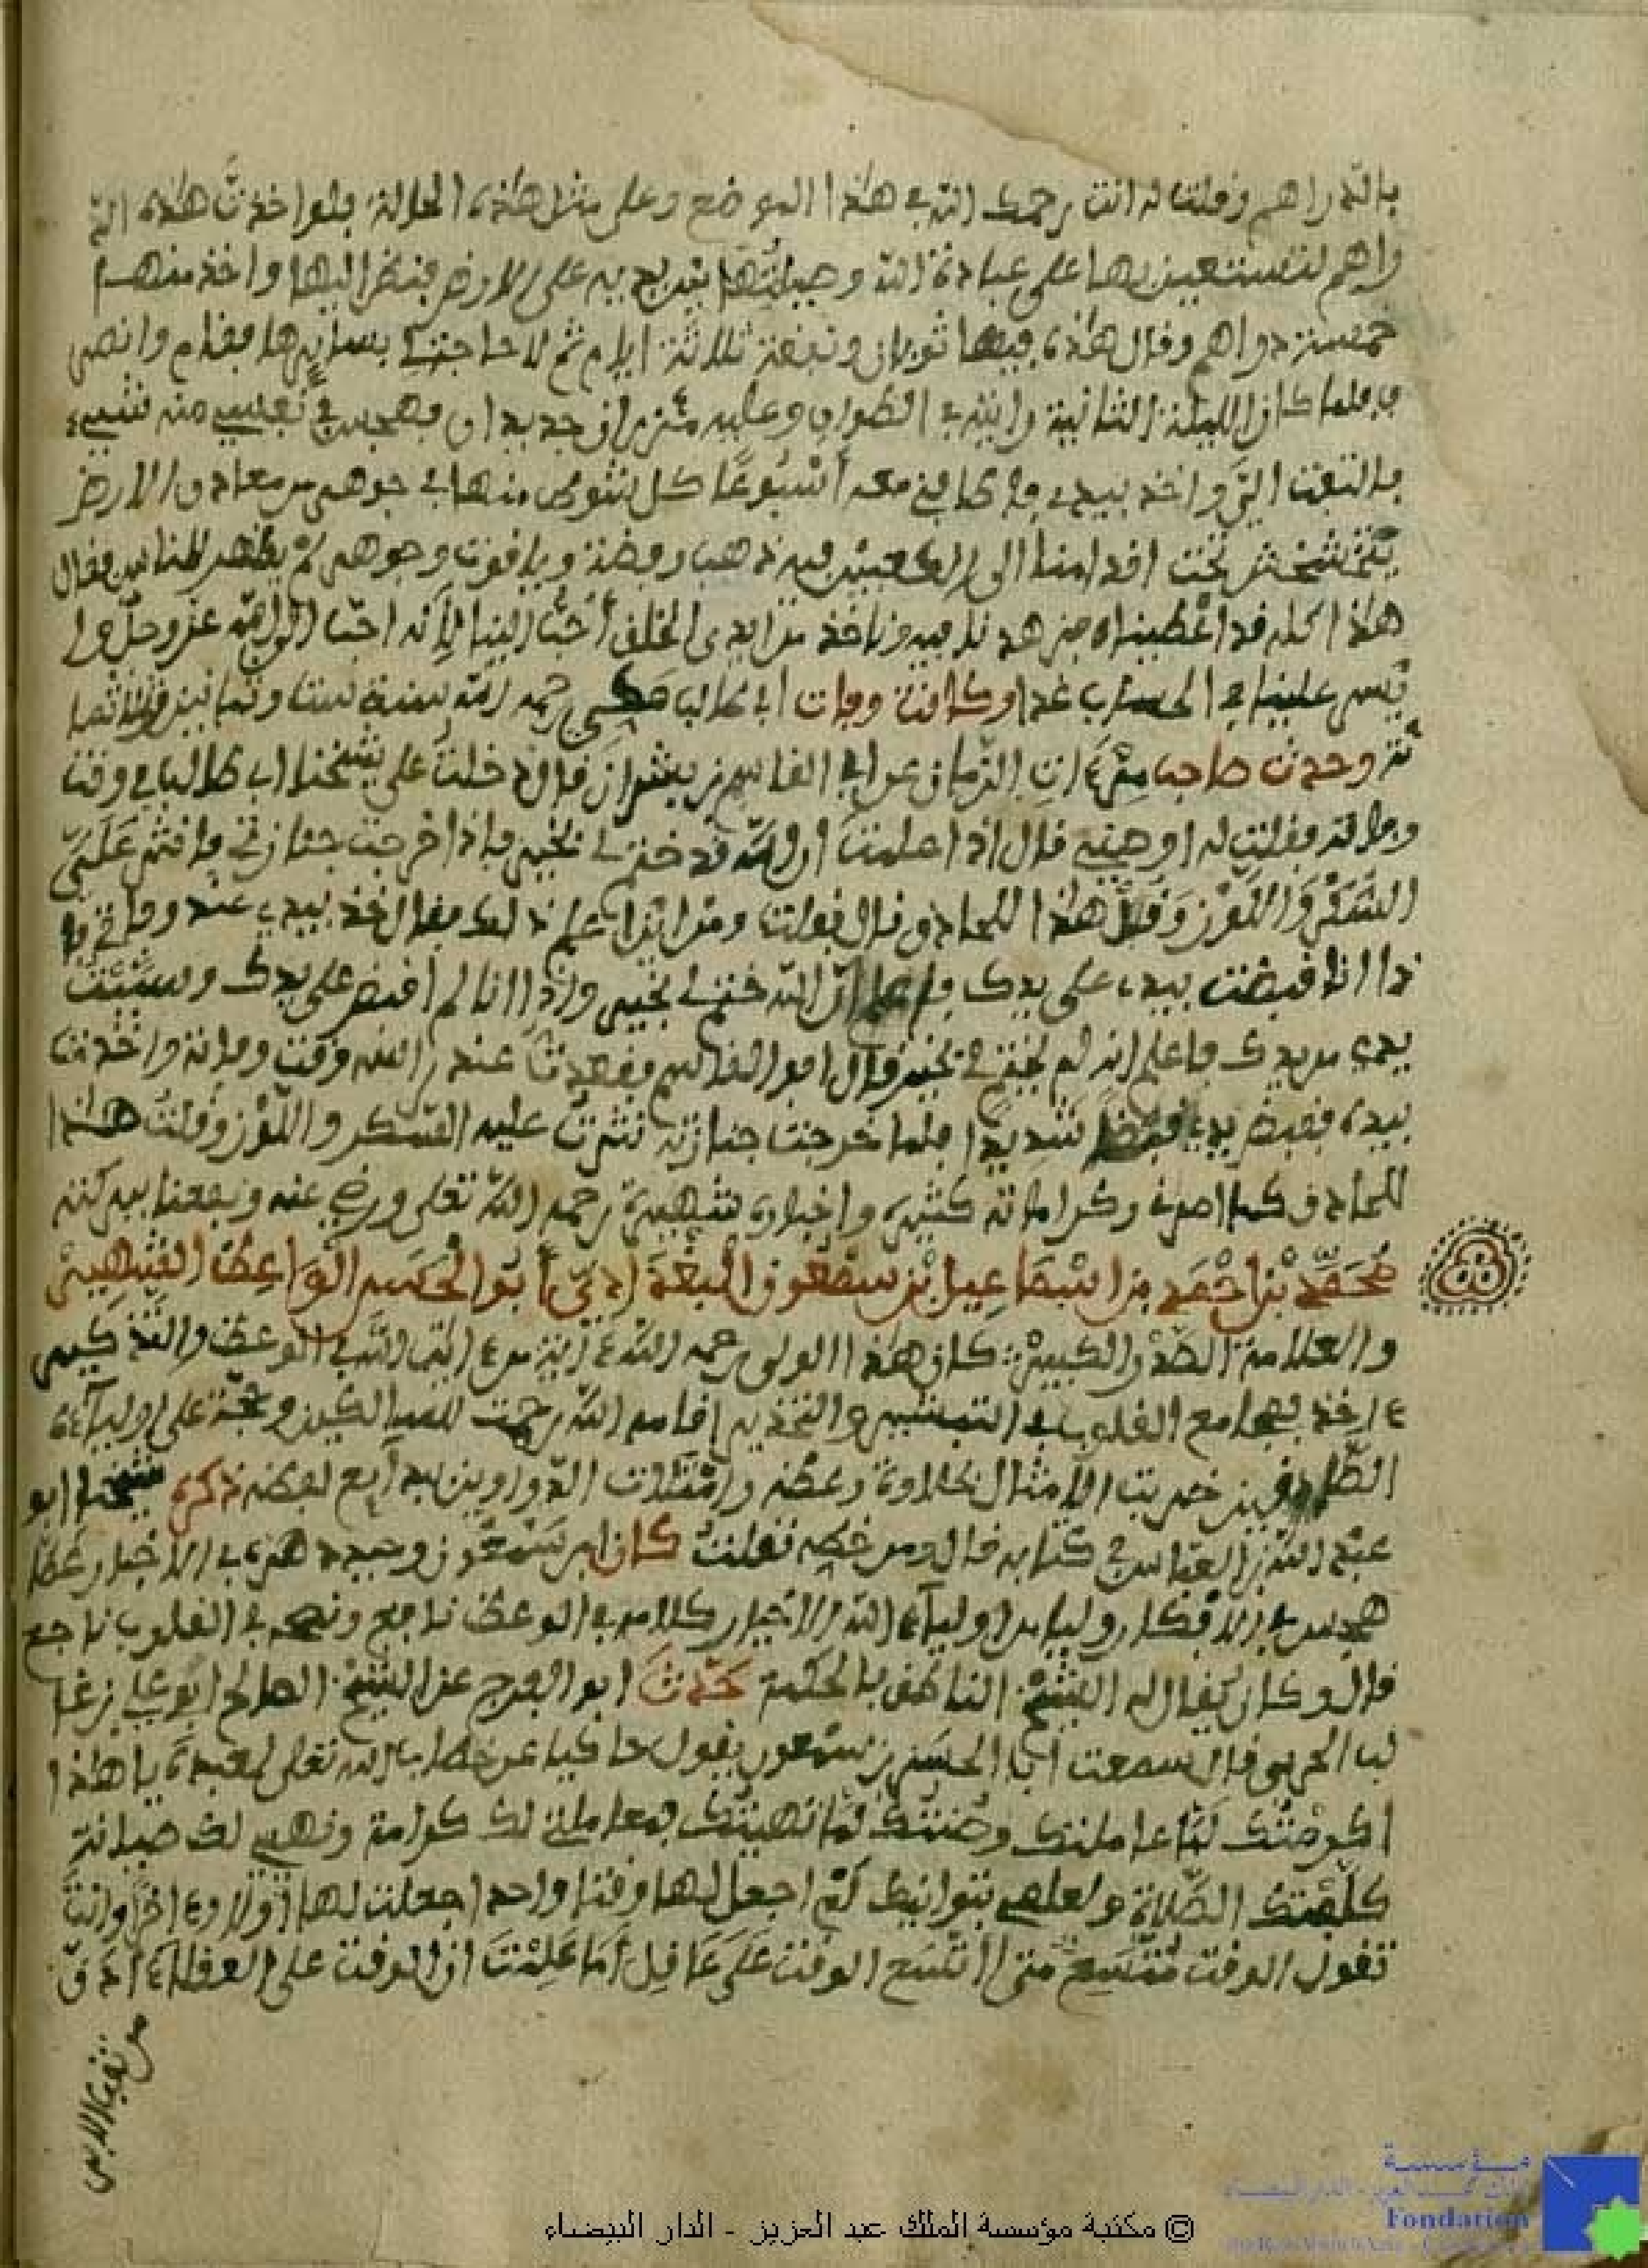 بالدراهم وقلت له انت رحمك الله في هذا الموضع وعلى مثل هذه الحالة فلو اخذت هذه الد
راهم لتستعين بها على عبادة الله وصببتها بين يديه على الارض فنظر اليها واخذ منها
خمسة دراهم وقال هذه فيها ثوبان ونفقة ثلاثة ايام ثم لا حاجة لي بسايرها فقام وانصر
ف فلما كان الليلة الثانية رايته في الطواف وعليه مئزران جديدان فهجس في نفسي منه شيء
فالتفت الي واخذ بيدي فاطافني معه اسبوعا كل شوط منها في جوهر من معادن الارض
يتخشخش تحت اقدامنا الى الكعبين فيه ذهب وفضة وياقوت وجوهر لم يظهر للناس فقال
هذا كله قد اعطيناه فزهدنا فيه وناخذ من ايدي الخلق احب الينا لانه احب الى الله عز وجل وا
يسر علينا في الحساب غدا وكانت وفات ابي طالب مكي رحمه الله سنة ست وثمانين وثلاثما
ئة وحدث صاحب مرءات الزمان عن ابي القاسم بن بشران قال دخلت على شيخنا ابي طالب في وقت
وفاته فقلت له اوصيني قال اذا علمت ان الله قد ختم لي بخير فاذا خرجت جنازتي فانثر علي
السكر واللوز وقل هذا للحاذق قال فقلت ومن اين اعلم ذلك فقال خذ بيدي عند وفاتي فا
ذا انا قبضت بيدي على يدك فاعلم ان الله ختم لي بخير واذا انا لم اقبض على يدك وسيبت
يدي من يدك فاعلم انه لم يختم لي بخير قال ابو القاسم فقعدت عنده الى وقت وفاته واخذت
بيده فقبض يدي قبضا شديدا فلما خرجت جنازته نثرت عليه السكر واللوز وقلت هذا
للحاذق كما امرني وكراماته كثيرة واخباره شهيرة رحمه الله تعلى ورضي عنه ونفعنا ببركته
محمد بن احمد بن اسماعيل بن سمعون البغدادي ابو الحسن الواعظ الشهير
والعلامة الصدر الكبير كان هذا الولي رحمه الله ءاية من ءايات الله في الوعظ والتذكير
ءاخذ بمجامع القلوب في التبشير والتحذير اقامه الله رحمة للسالكين وحجة على اوليآءه
الصادقين ضربت الامثال بحلاوة وعظه وامتلات الدواوين ببدآيع لفظه ذكره شيخنا ابو
عبد الله بن العباس في كتابه قال ومن خطه نقلت كان ابن سمعون وحيد دهره في الاخبار عما
هجس في الافكار وليا من اوليآء الله الاخيار كلامه في الوعظ نافع ونصحه في القلوب ناجع
قال وكان يقال له الشيخ الناطق بالحكمة حدث ابو الفرج عن الشيخ الصالح ابو علي بن غا
لب الحربي قال سمعت ابا الحسن بن سمعون يقول حاكيا عن خطاب الله تعلى لعبده يا هذا
اكرمتك لما عاملتك وصنتك لما نهيتك فمعاملتي لك كرامة ونهيي لك صيانة
كلفتك الصلاة ولعلمي بتوانيك لم اجعل لها وقتا واحدا جعلت لها اولا وءاخرا وانت
تقول الوقت متسع متى اتسع الوقت على عاقل اما علمت ان الوقت على العقلاء ادق
من ثقب الابر
© مكتبة مؤسسة الملك عبد العزيز - الدار البيضاء
مؤسسة
Fondation